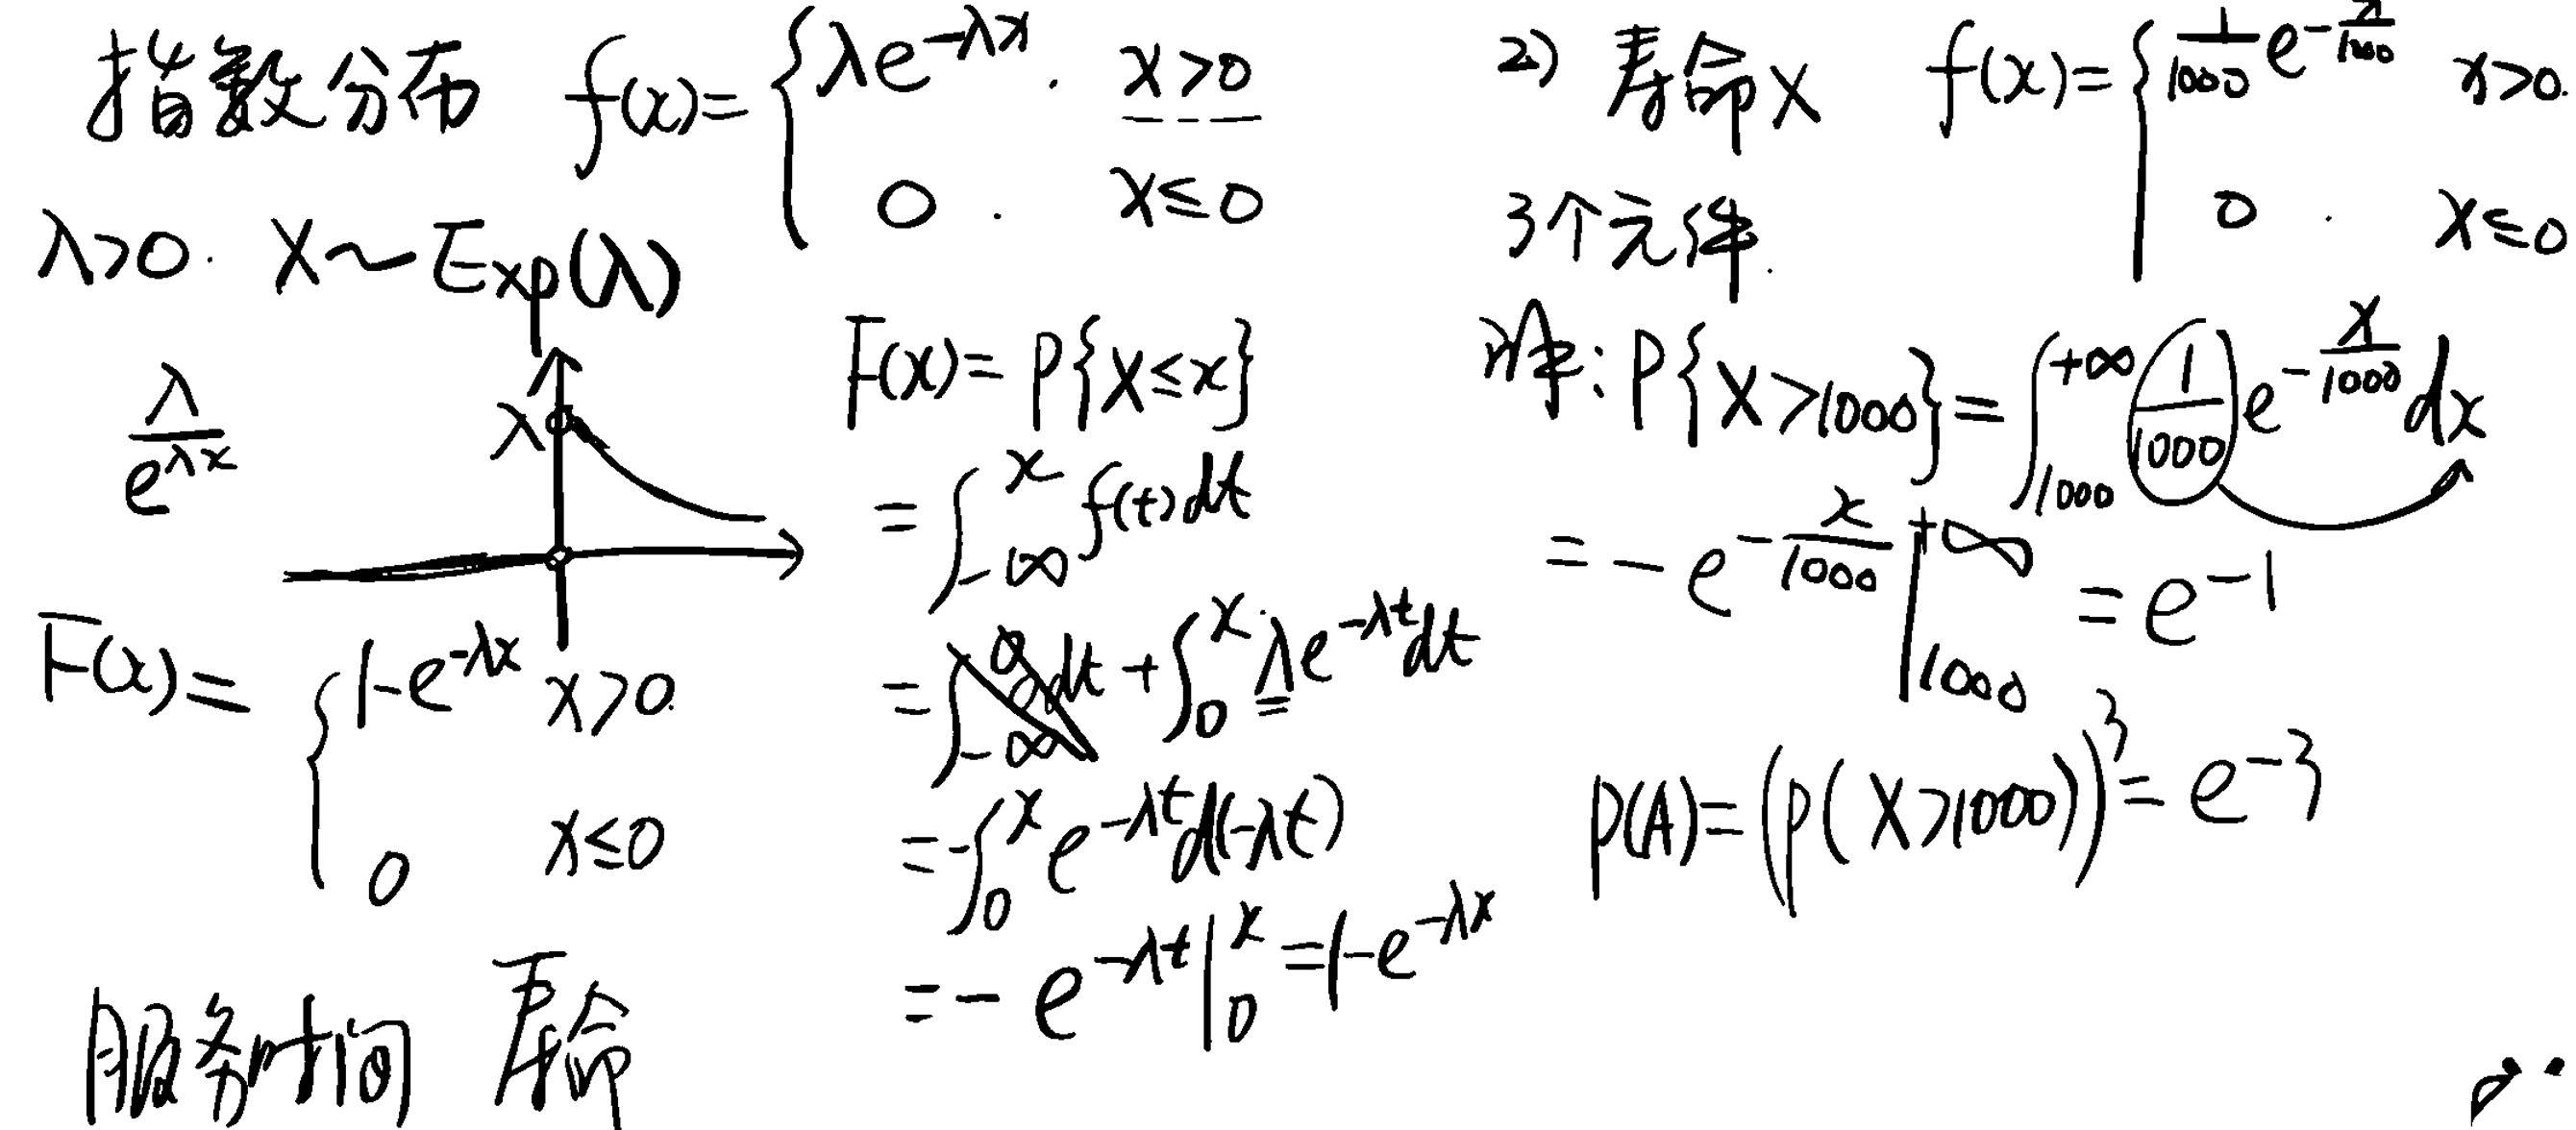 指数分布 f(x)= { λe^{-λx}. x>0
0. x≤0
λ>0. X~Exp(λ)
λ/e^{λx}
λ
F(x)= { 1-e^{-λx} x>0.
0 x≤0
服务时间 寿命
F(x)= P{X≤x}
=∫_{-∞}^{x} f(t)dt
=∫_{-∞}^{0} 0dt + ∫_{0}^{x} λe^{-λt}dt
=-∫_{0}^{x} e^{-λt}d(-λt)
=- e^{-λt}|_{0}^{x} =1-e^{-λx}
2) 寿命X f(x)= { 1/1000 e^{-x/1000} x>0.
0. x≤0
3个元件.
解: P{X>1000}=∫_{1000}^{+∞} 1/1000 e^{-x/1000}dx
=- e^{-x/1000}|_{1000}^{+∞} =e^{-1}
P(A)=(P(X>1000))^3= e^{-3}